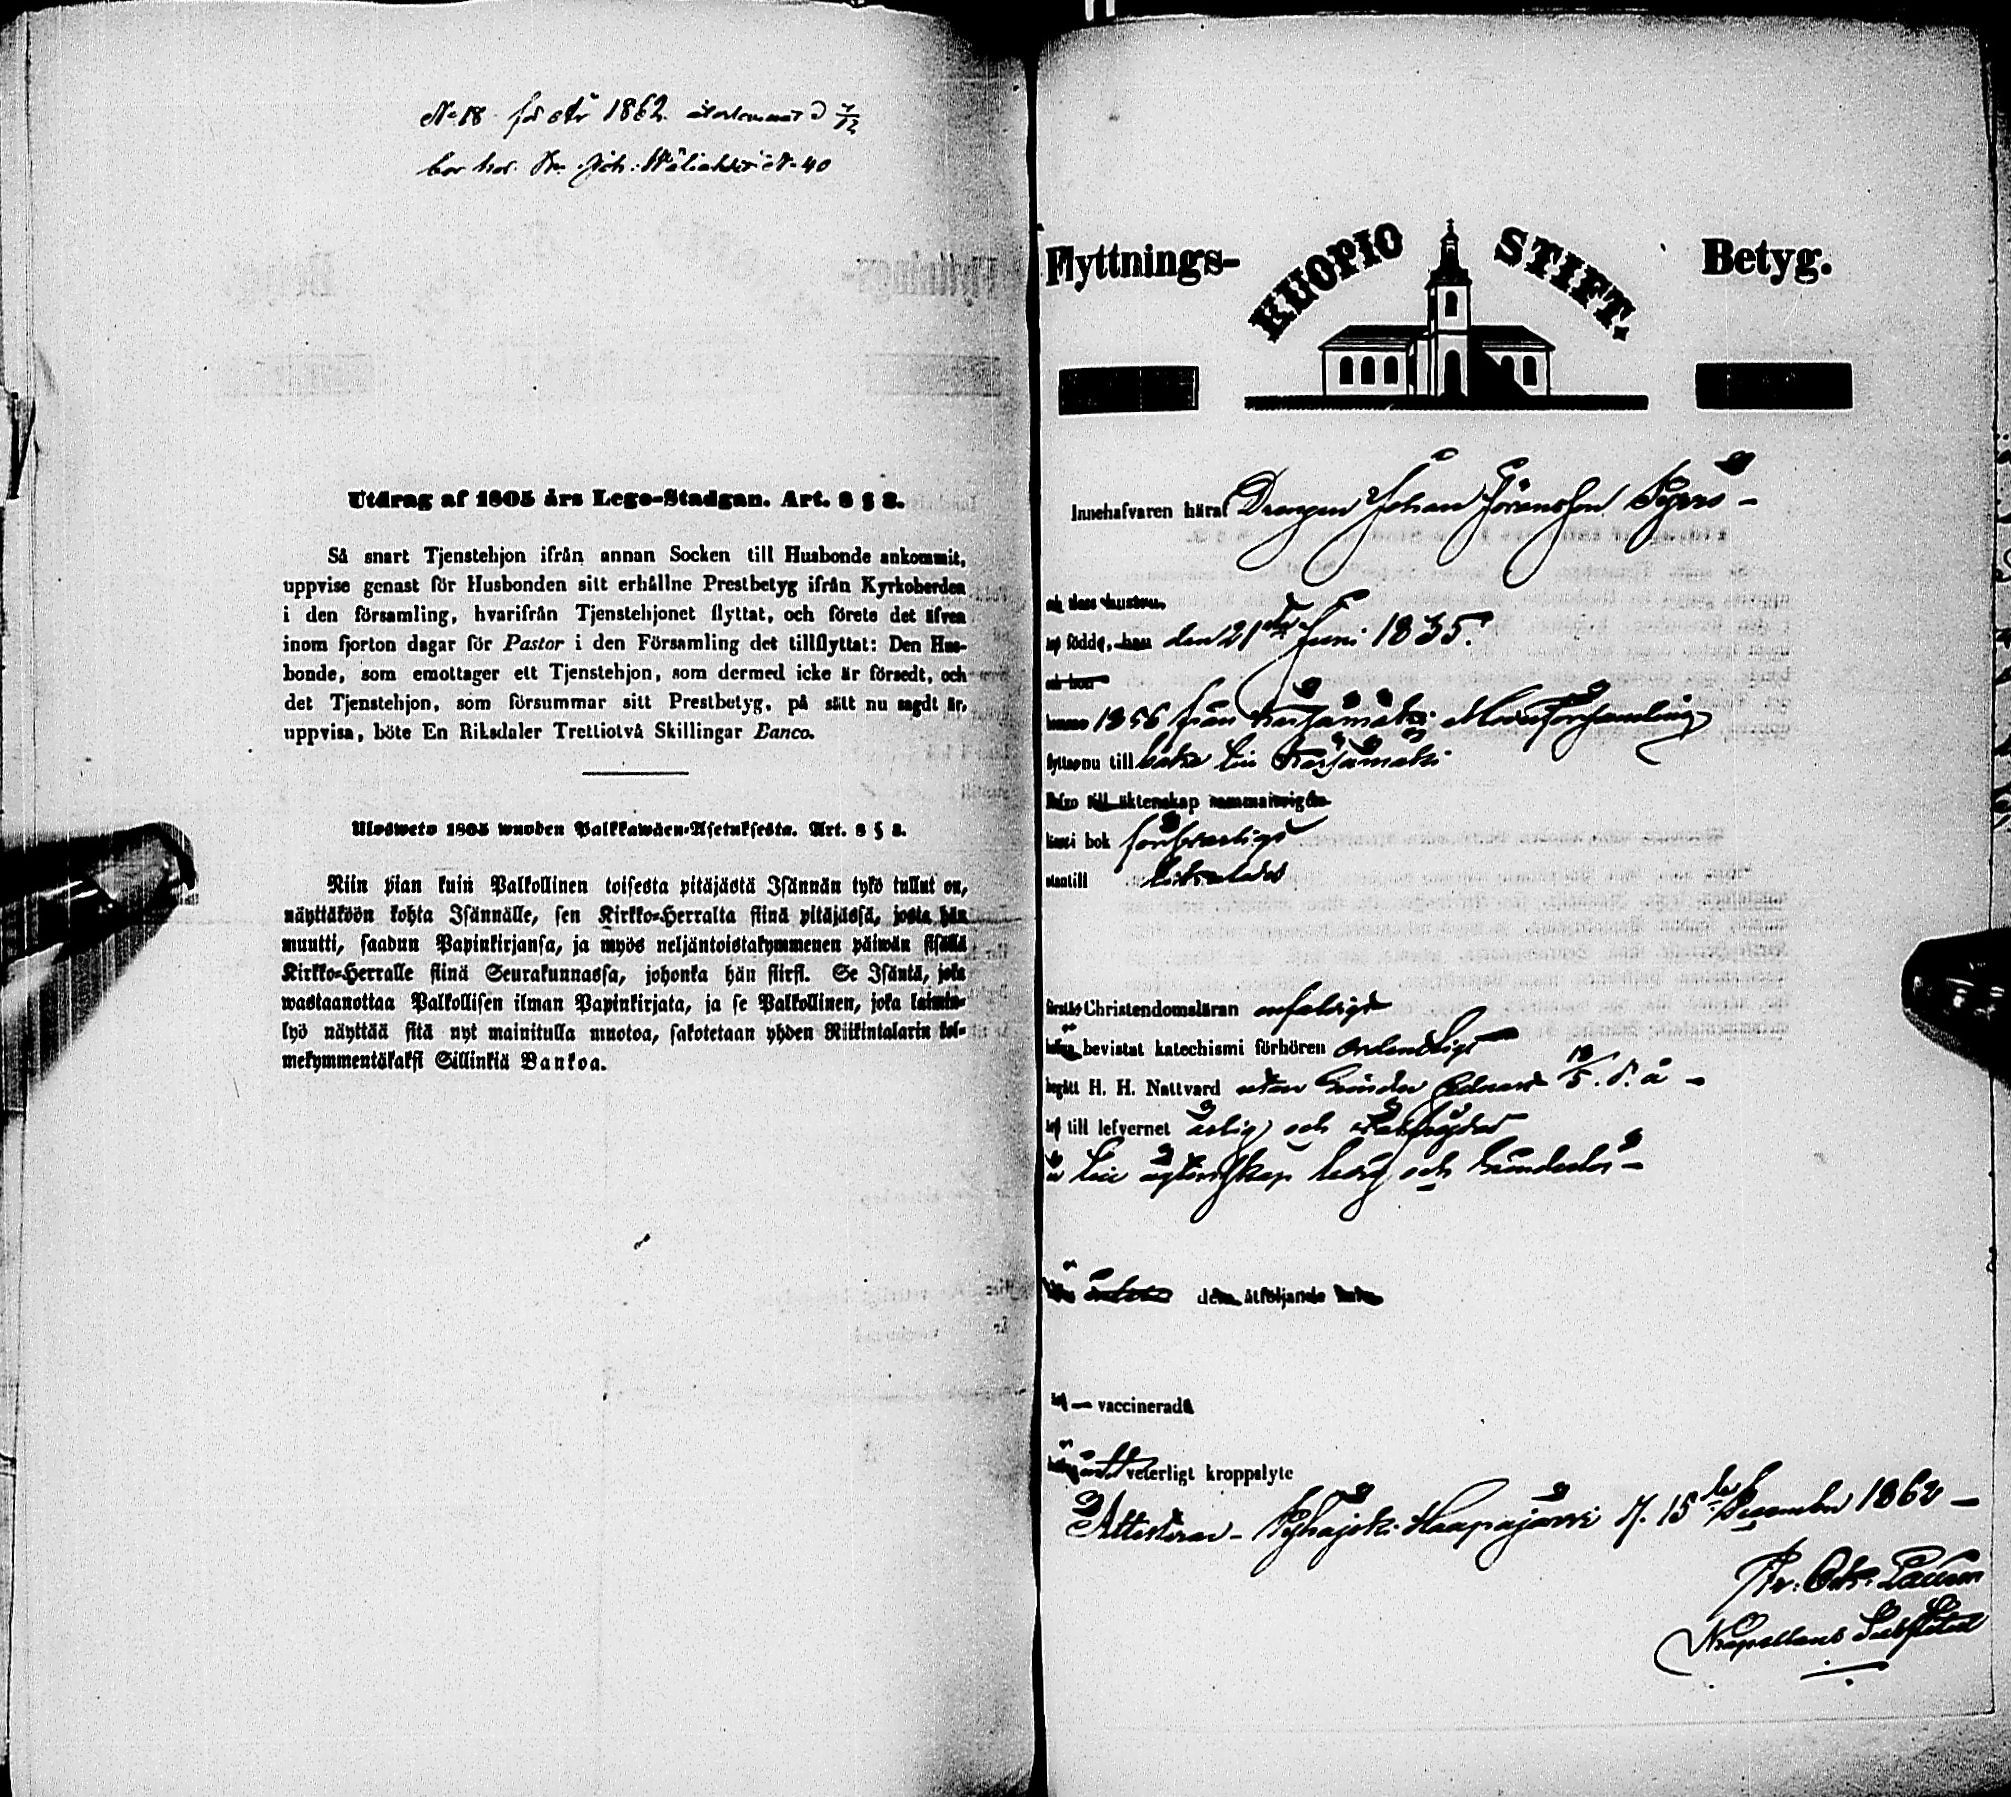 No 18 för År 1862.
bor hos Joh: No 40
Utdrag af 1805 års Lego-Stadgan. Art. 8 § 8.
Så snart Tjenstehjon ifrån annan Socken till Husbonde ankommit,
uppvise genast för Husbonden sitt erhållne Prestbetyg ifrån Kyrkoherden
i den församling, hvarifrån Tjenstehjonet flyttat, och förete det äfven
inom fjorton dagar för Pastor i den Församling det tillflyttat: Den Hus-
bonde, som emottager ett Tjenstehjon, som dermed icke är försedt, och
det Tjenstehjon, som försummar sitt Prestbetyg, på sätt nu sagdt är,
uppvisa, böte En Riksdaler Trettiotvå Skillingar Banco.
Ulosweto 1805 wuoden Palkkawäen-Asetuksesta. Art. 8 § 8.
Niin pian kuin Palkollinen toisesta pitäjästä Isännän tykö tullut on,
näyttäköön kohta Isännälle, sen Kirkko-Herralta siinä pitäjässä, josta hän
muutti, saadun Papinkirjansa, ja myös neljäntoistakymmenen päiwän sisällä
Kirkko-Herralle siinä Seurakunnassa, johonka hän siirsi. Se Isäntä, joka
wastaanottaa Palkollisen ilman Papinkirjata, ja se Palkollinen, joka laimin-
lyö näyttää sitä nyt mainitulla muotoa, sakotetaan yhden Riikintalarin kol-
mekymmentäkaksi Sillinkiä Bankoa.
Flyttnings- KUOPIO STIFT. Betyg.
Innehafvaren häraf Drängen Johan Göransson
och dess hustru
född, den 21 Juni 1835.
1856 från Kärsämäki Moderförsamling
flyttar nu till baka till Kärsämäki
till äktenskap
i bok försvarligt
Christendomsläran enfaldigt
bevistat katechismi förhören ordentligt
begått H. H. Nattvard utan hinder 18/5 d. å -
till lefvernet ärlig och
till ägtenskap ledig och hinderlös -
dem åtföljande
vaccinerad
veterligt kroppslyte
Attesterar - Pyhäjoki Haapajärvi d. 15 December 1862 -
Kapellans